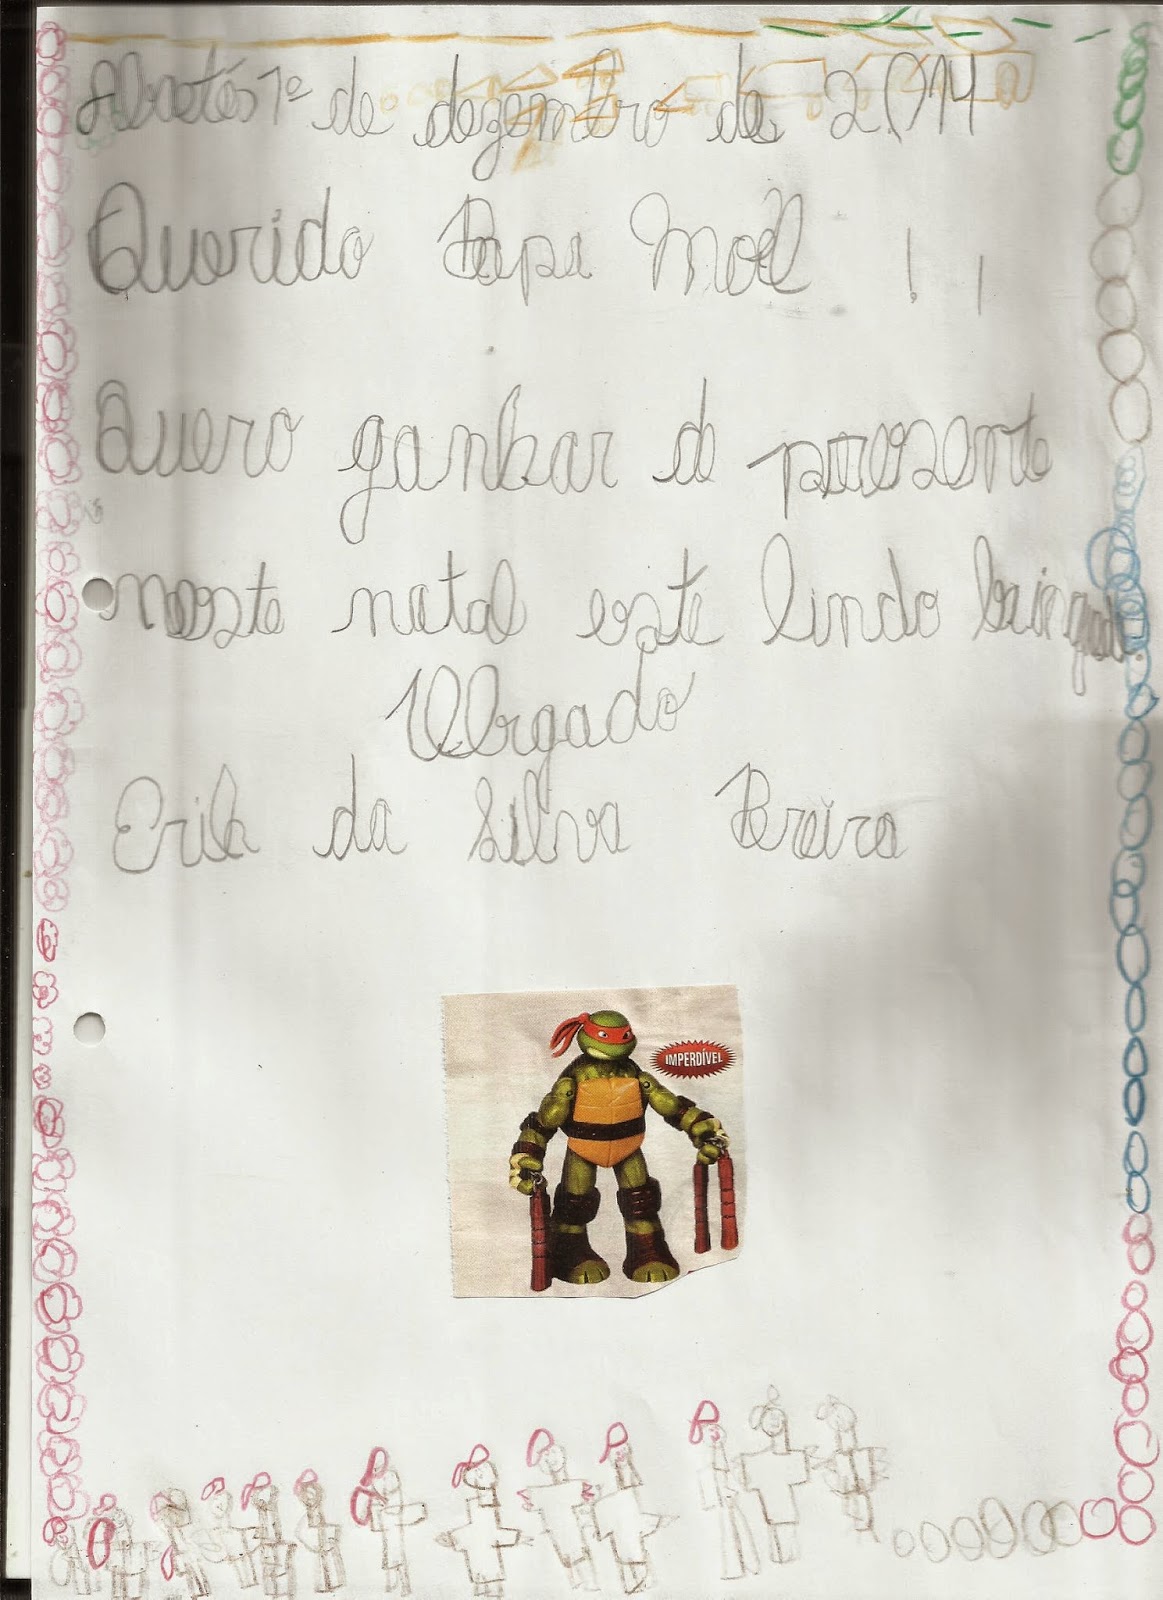 Abaetés 1º de dezembro de 2.014
Querido Papai Noel !!
Quero ganhar de presente
neste natal este lindo brinquedo.
Obrgado
Erik da Silva Pereira
IMPERDÍVEL